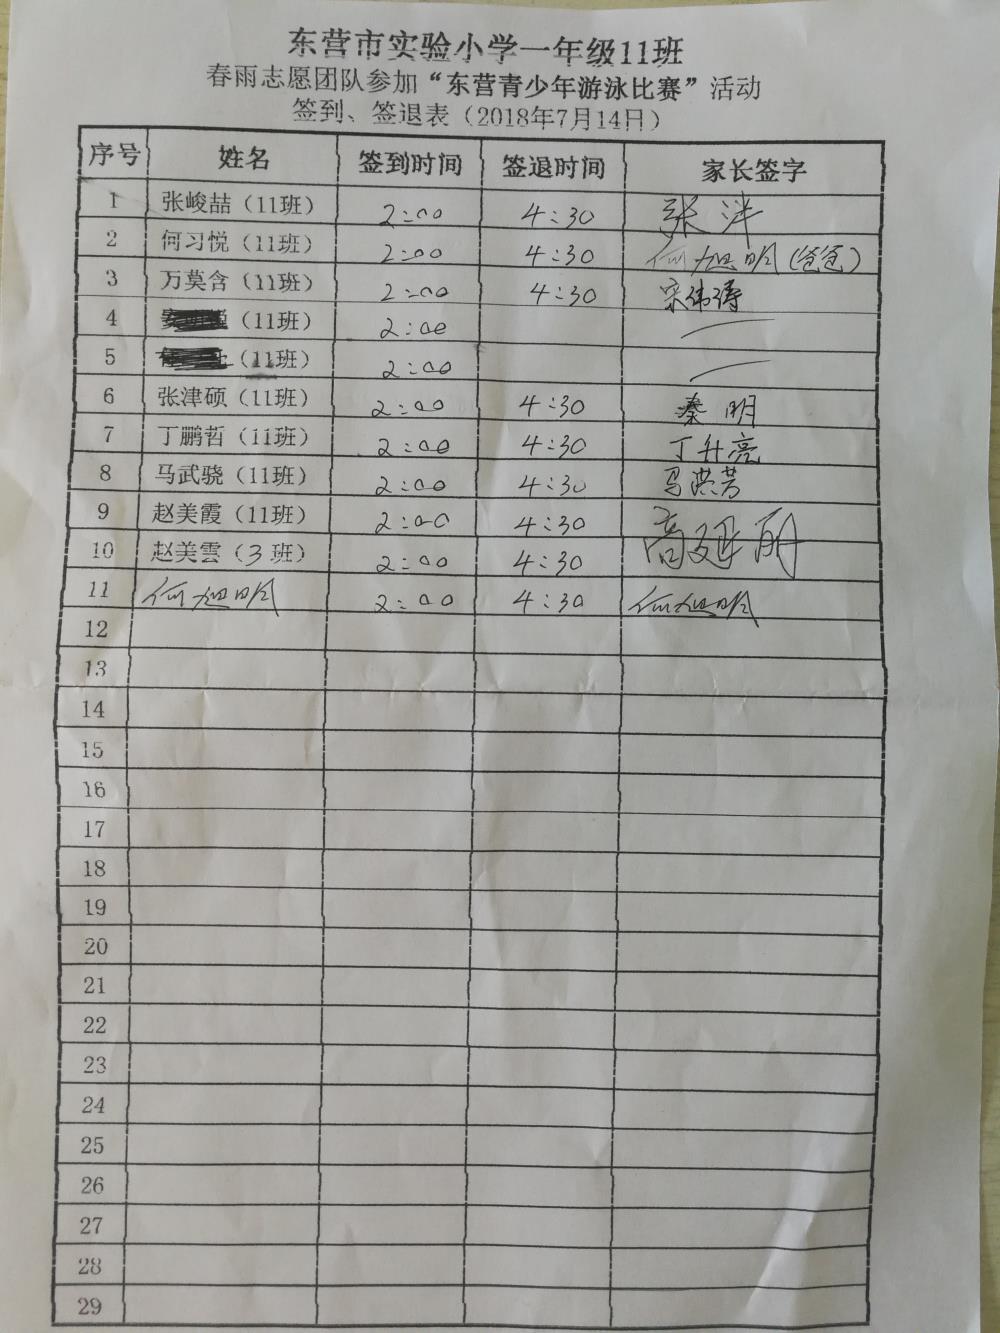 东营市实验小学一年级11班
春雨志愿团队参加“东营青少年游泳比赛”活动
签到、签退表（2018年7月14日）
序号 姓名 签到时间 签退时间 家长签字
1 张峻喆（11班） 2:00 4:30 张洋
2 何习悦（11班） 2:00 4:30 何旭明（爸爸）
3 万莫含（11班） 2:00 4:30 宋伟涛
4 （11班） 2:00
5 （11班） 2:00
6 张津硕（11班） 2:00 4:30 秦明
7 丁鹏哲（11班） 2:00 4:30 丁升亮
8 马武骁（11班） 2:00 4:30 马洪芳
9 赵美霞（11班） 2:00 4:30
10 赵美雲（3班） 2:00 4:30
11 何旭明 2:00 4:30 何旭明
12
13
14
15
16
17
18
19
20
21
22
23
24
25
26
27
28
29